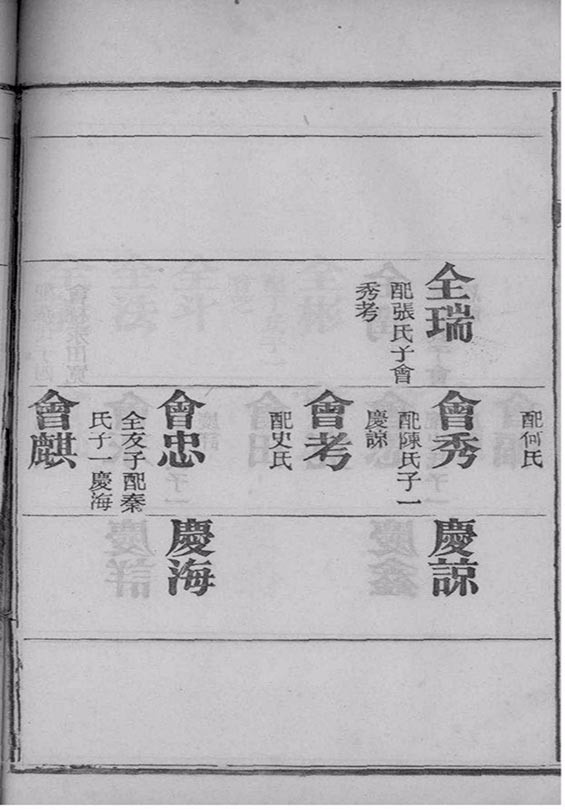 全瑞
配張氏子會
秀考
配何氏
會秀
配陳氏子一
慶諒
會考
配史氏
會忠
全友子配秦
氏子一慶海
會麒
慶諒
慶海